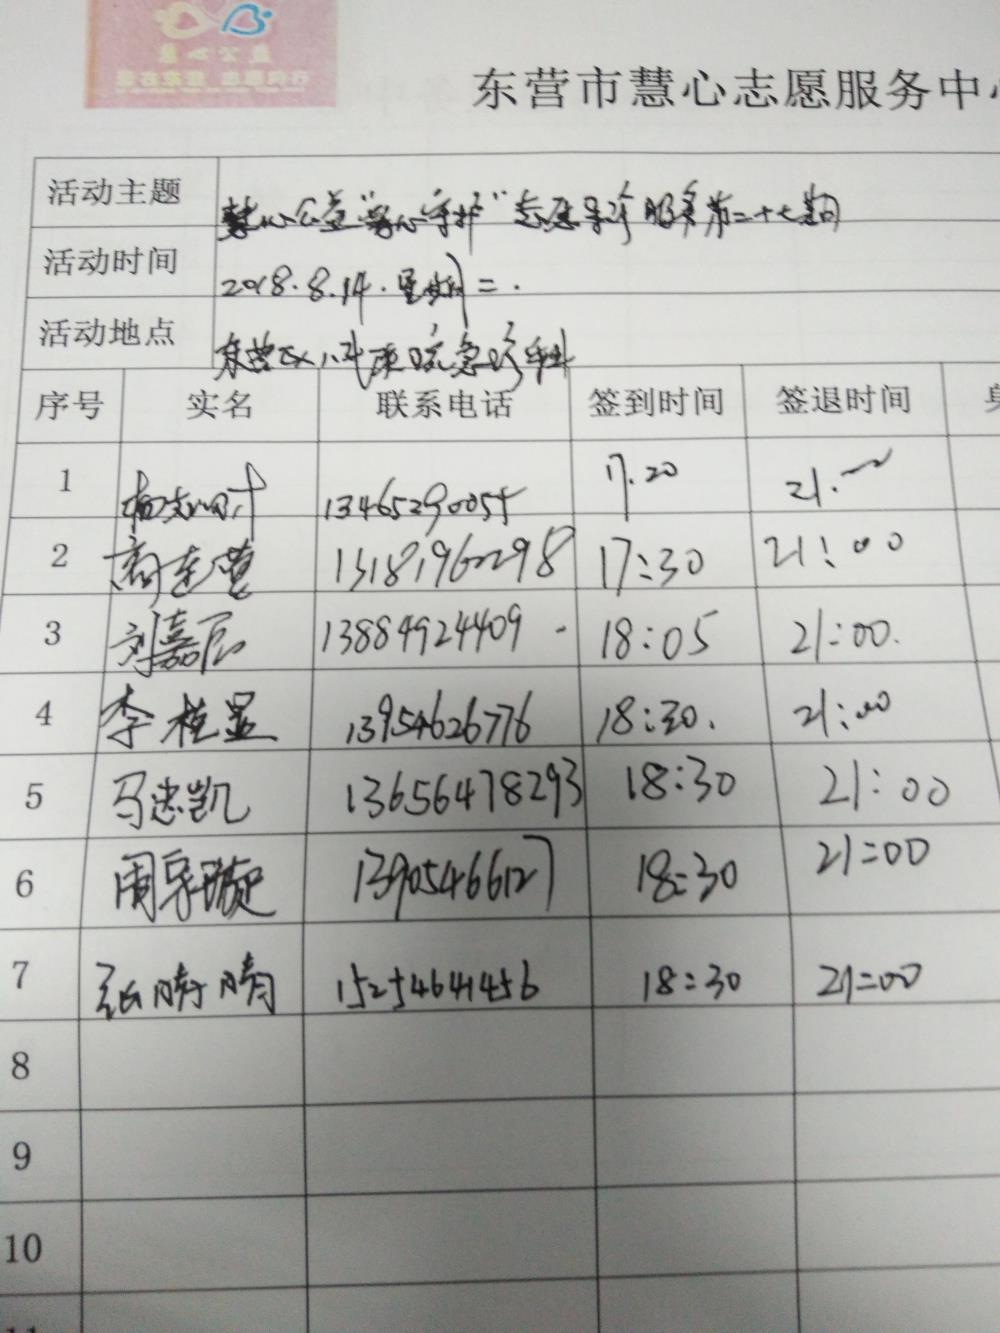 慧心公益
东营市慧心志愿服务中心
活动主题 慧心公益"慧心守护"志愿导诊服务第二十七期
活动时间 2018.8.14.星期二.
活动地点 东营区人民医院急诊科
序号 实名 联系电话 签到时间 签退时间
1 13465290054 17.20 21.
2 13181960298 17:30 21:00
3 刘嘉辰 13884924409 18:05 21:00.
4 李桂显 13954626776 18:30. 21:00
5 马忠凯 13656478293 18:30 21:00
6 13905466127 18:30 21:00
7 张晴晴 15254641456 18:30 21:00
8
9
10
11